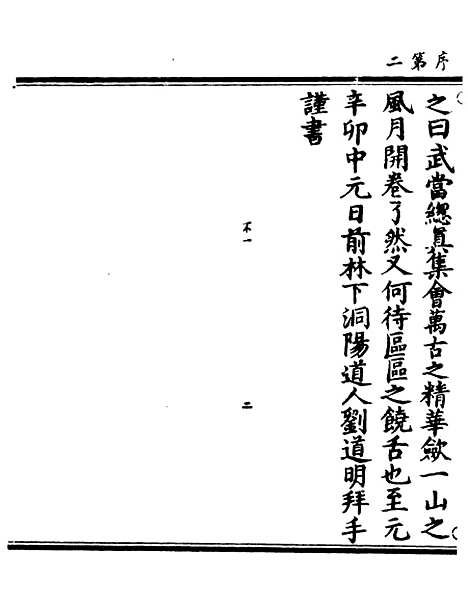 序第二
之曰武當緫真集會萬古之精華歛一山之
風月開卷了然又何待區區之饒舌也至元
辛卯中元日前林下洞陽道人劉道明拜手
謹書
不一
二